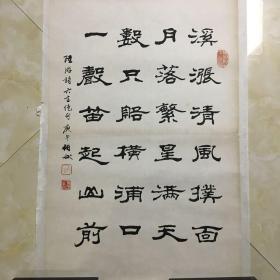 溪漲清風撲面
月落繁星滿天
數只船橫浦口
一聲笛起山前
陸游詩六言絕句 庚午